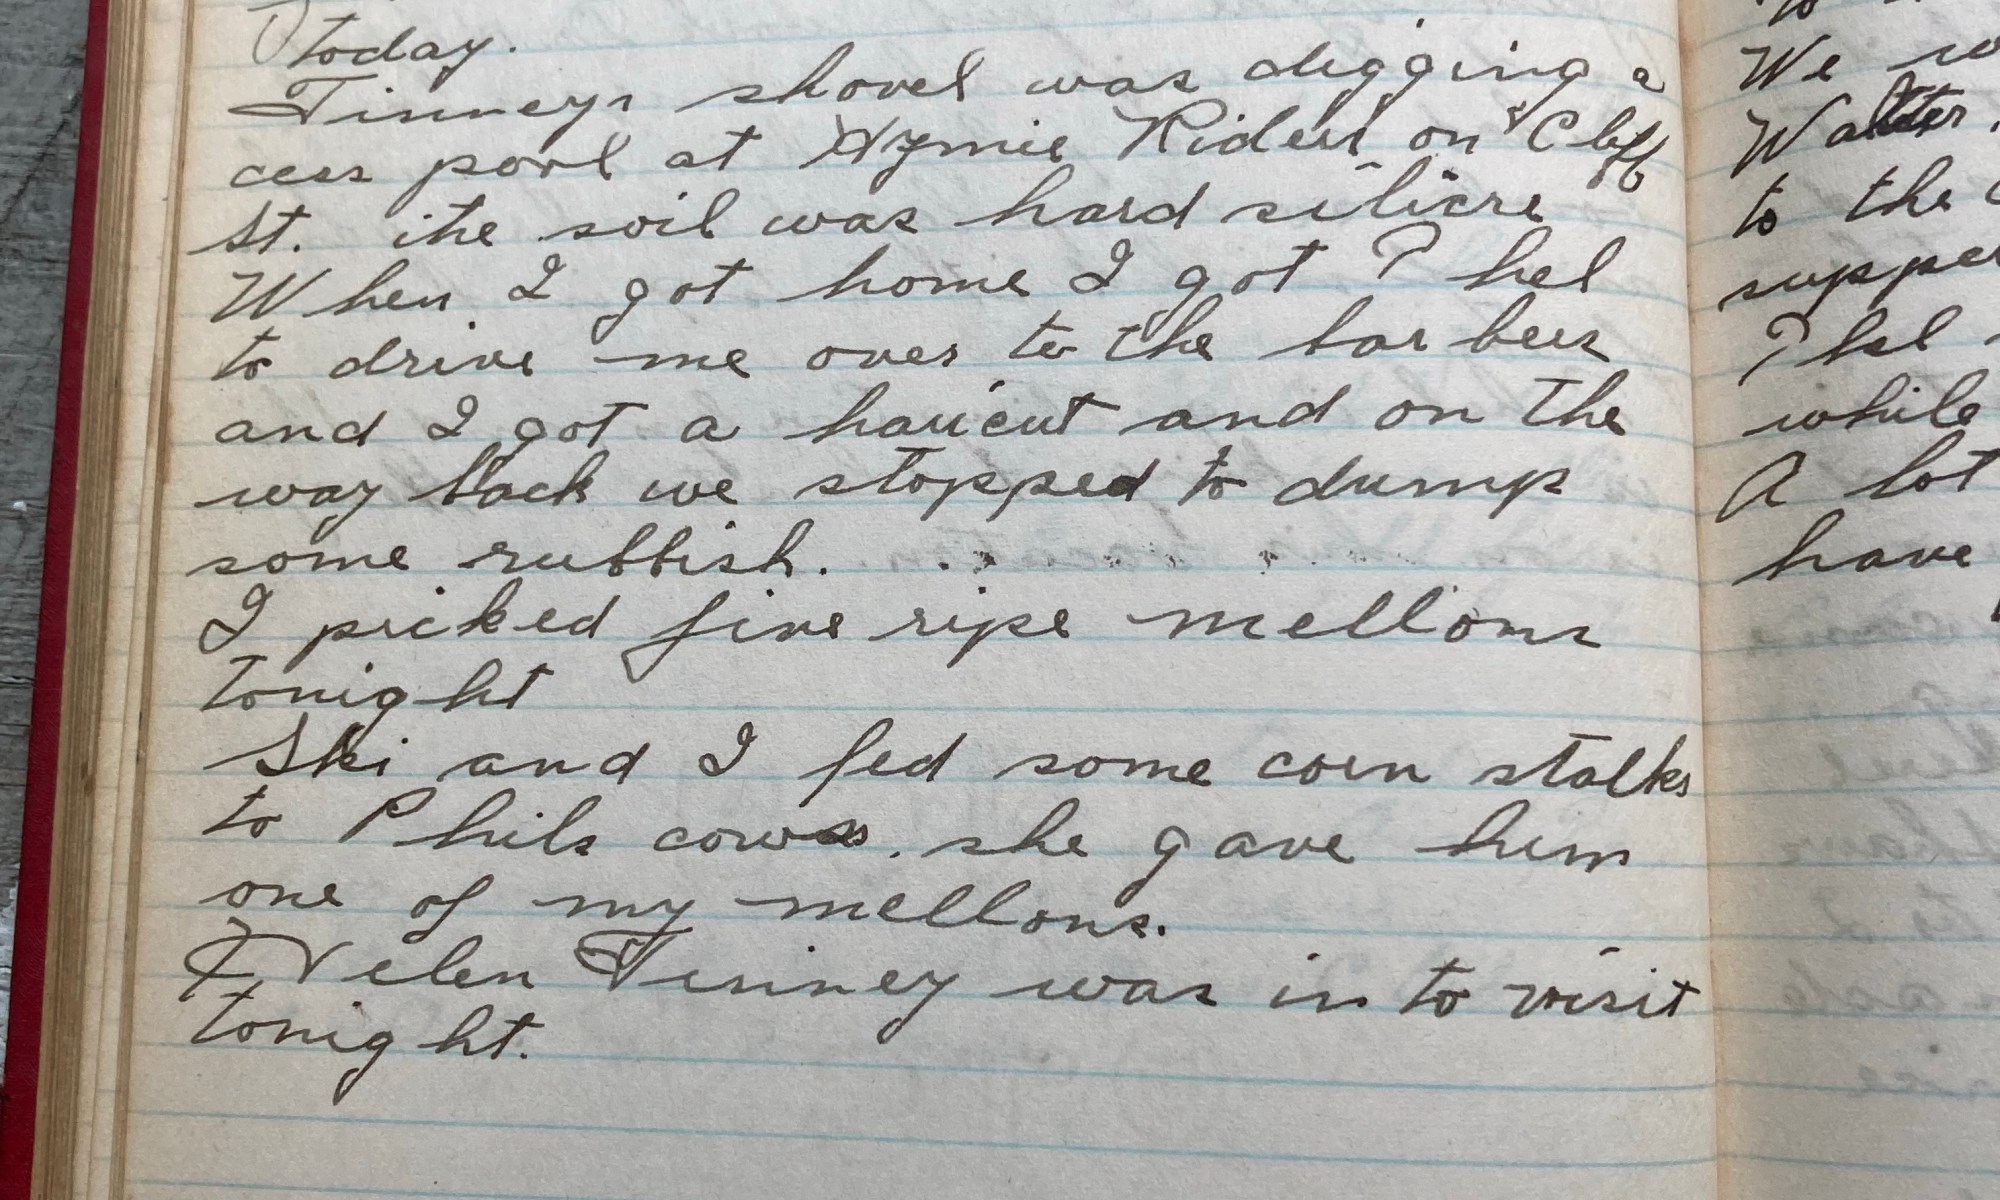 today.
Tinneys shovel was digging a
cess pool at Hymie Riders on Cliff
St. the soil was hard
When I got home I got Phel
to drive me over to the barbers
and I got a haircut and on the
way back we stopped to dump
some rubbish.
I picked five ripe mellons
tonight
Ski and I fed some corn stalks
to Phils cows. she gave him
one of my mellons.
Helen Tinney was in to visit
tonight.
to
We
Walter
to the
supper
Phel
while
A lot
have